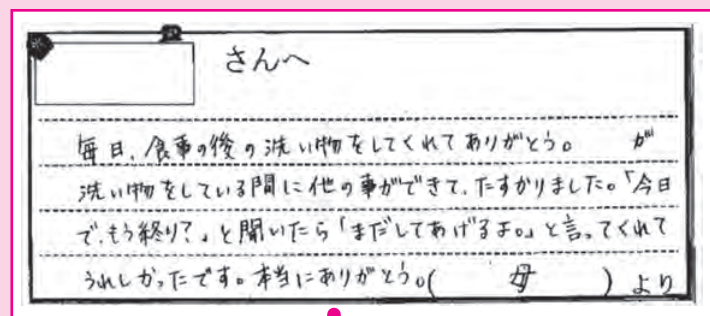 さんへ
毎日、食事の後の洗い物をしてくれてありがとう。 が
洗い物をしている間に他の事ができて、たすかりました。「今日
で、もう終り?」と聞いたら「まだしてあげるよ。」と言ってくれて
うれしかったです。本当にありがとう。( 母 )より